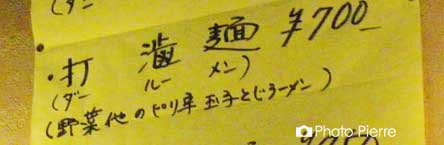 (ダー
・打 滷 麺 ¥700
(ダー ルー メン)
(野菜他のピリ辛玉子とじラーメン)
Photo Pierre